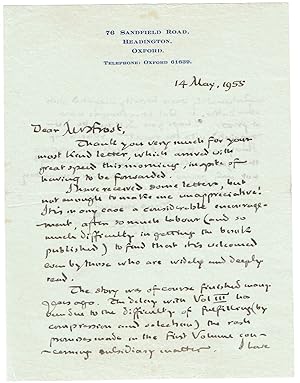 76 SANDFIELD ROAD,
HEADINGTON,
OXFORD.
TELEPHONE: OXFORD 61639.
14 May, 1955
Dear Mr Frost,
Thank you very much for your
most kind letter, which arrived with
great speed this morning, in spite of
having to be forwarded.
I have received some letters, but
not enough to make me unappreciative!
It is in any case a considerable encourage-
ment, after so much labour (and so
much difficulty in getting the book
published) to find that it is welcomed
even by those who are widely and deeply
read.
The story was of course finished many
years ago. The delay with Vol III has
been due to the difficulty of fulfilling (by
compression and selection) the rash
promises made in the First Volume con-
cerning subsidiary matter. I have